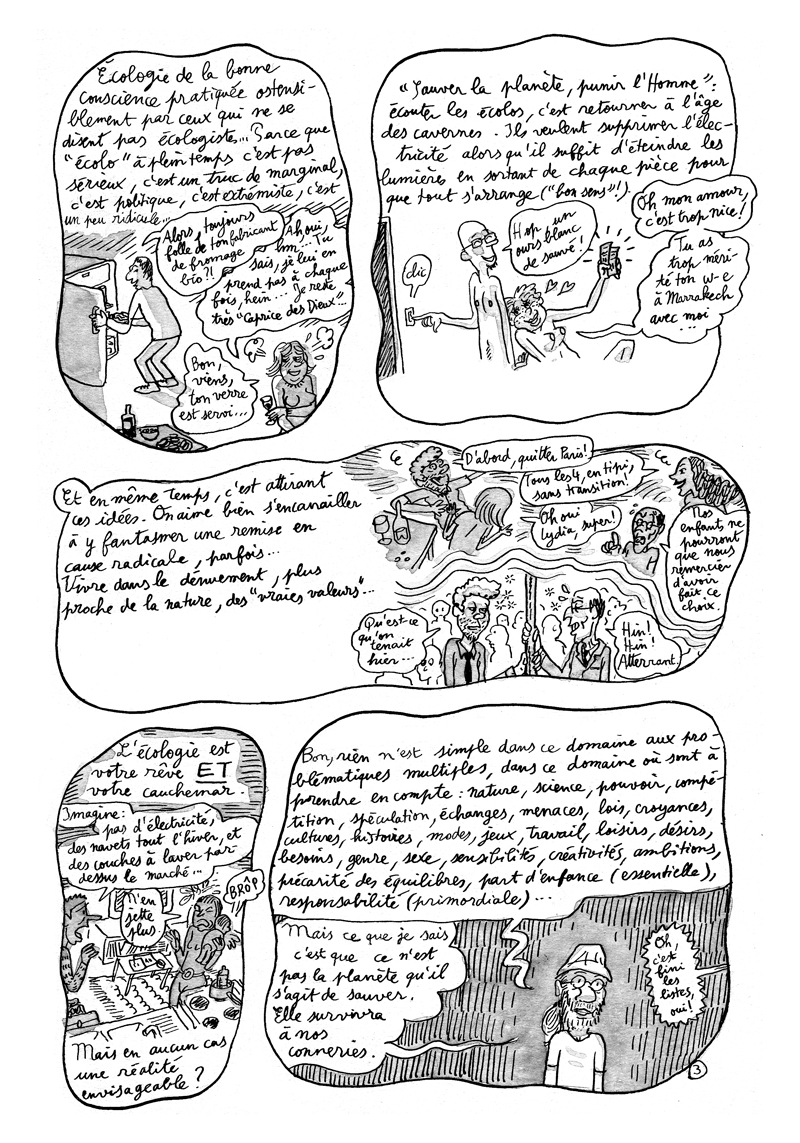 Écologie de la bonne
conscience pratiquée ostensi-
blement par ceux qui ne se
disent pas écologiste... Parce que
"écolo" à plein temps c'est pas
sérieux, c'est un truc de marginal,
c'est politique, c'est extrémiste, c'est
un peu ridicule...
Alors, toujours
folle de ton fabricant
de fromage
bio?!
Ah oui,
hm... Tu
sais, je lui en
prend pas à chaque
fois, hein... Je reste
très "Caprice des Dieux"...
Bon,
viens,
ton verre
est servi...
"Sauver la planète, punir l'Homme":
écouter les écolos, c'est retourner à l'âge
des cavernes. Ils veulent supprimer l'élec-
tricité alors qu'il suffit d'éteindre les
lumières en sortant de chaque pièce pour
que tout s'arrange ("bon sens"!).
clic
Hop un
ours blanc
de sauvé!
Oh mon amour,
c'est trop nice!
Tu as
trop méri-
té ton w-e
à Marrakech
avec moi
...
Et en même temps, c'est attirant
ces idées. On aime bien s'encanailler
à y fantasmer une remise en
cause radicale, parfois...
Vivre dans le dénuement, plus
proche de la nature, des "vraies valeurs"...
D'abord, quitter Paris!
Tous les 4, en tipi,
sans transition!
Oh oui
Lydia, super!
Nos
enfants ne
pourront
que nous
remercier
d'avoir
fait ce
choix.
Qu'est-ce
qu'on
tenait
hier...
Hin!
Hin!
Atterrant.
L'écologie est
votre rêve ET
votre cauchemar.
Imagine:
pas d'électricité,
des navets tout l'hiver, et
des couches à laver par-
dessus le marché...
N'en
jette
plus
BRÔP
Mais en aucun cas
une réalité
envisageable?
Bon, rien n'est simple dans ce domaine aux pro-
blématiques multiples, dans ce domaine où sont à
prendre en compte: nature, science, pouvoir, compé-
tition, spéculation, échanges, menaces, lois, croyances,
cultures, histoires, modes, jeux, travail, loisirs, désirs,
besoins, genre, sexe, sensibilités, créativités, ambitions,
précarité des équilibres, part d'enfance (essentielle),
responsabilité (primordiale)...
Mais ce que je sais
c'est que ce n'est
pas la planète qu'il
s'agit de sauver.
Elle survivra
à nos
conneries.
Oh,
c'est
fini
les
listes,
oui!
3